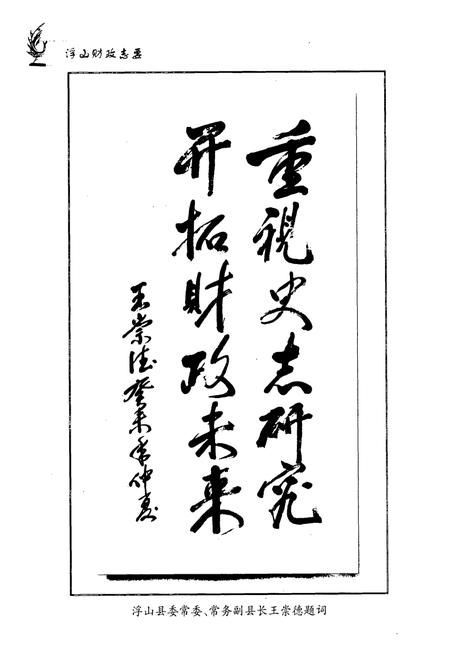 浮山财政志要
重視史志研究
开拓财政未来
王崇德癸未年仲夏
浮山县委常委、常务副县长王崇德题词